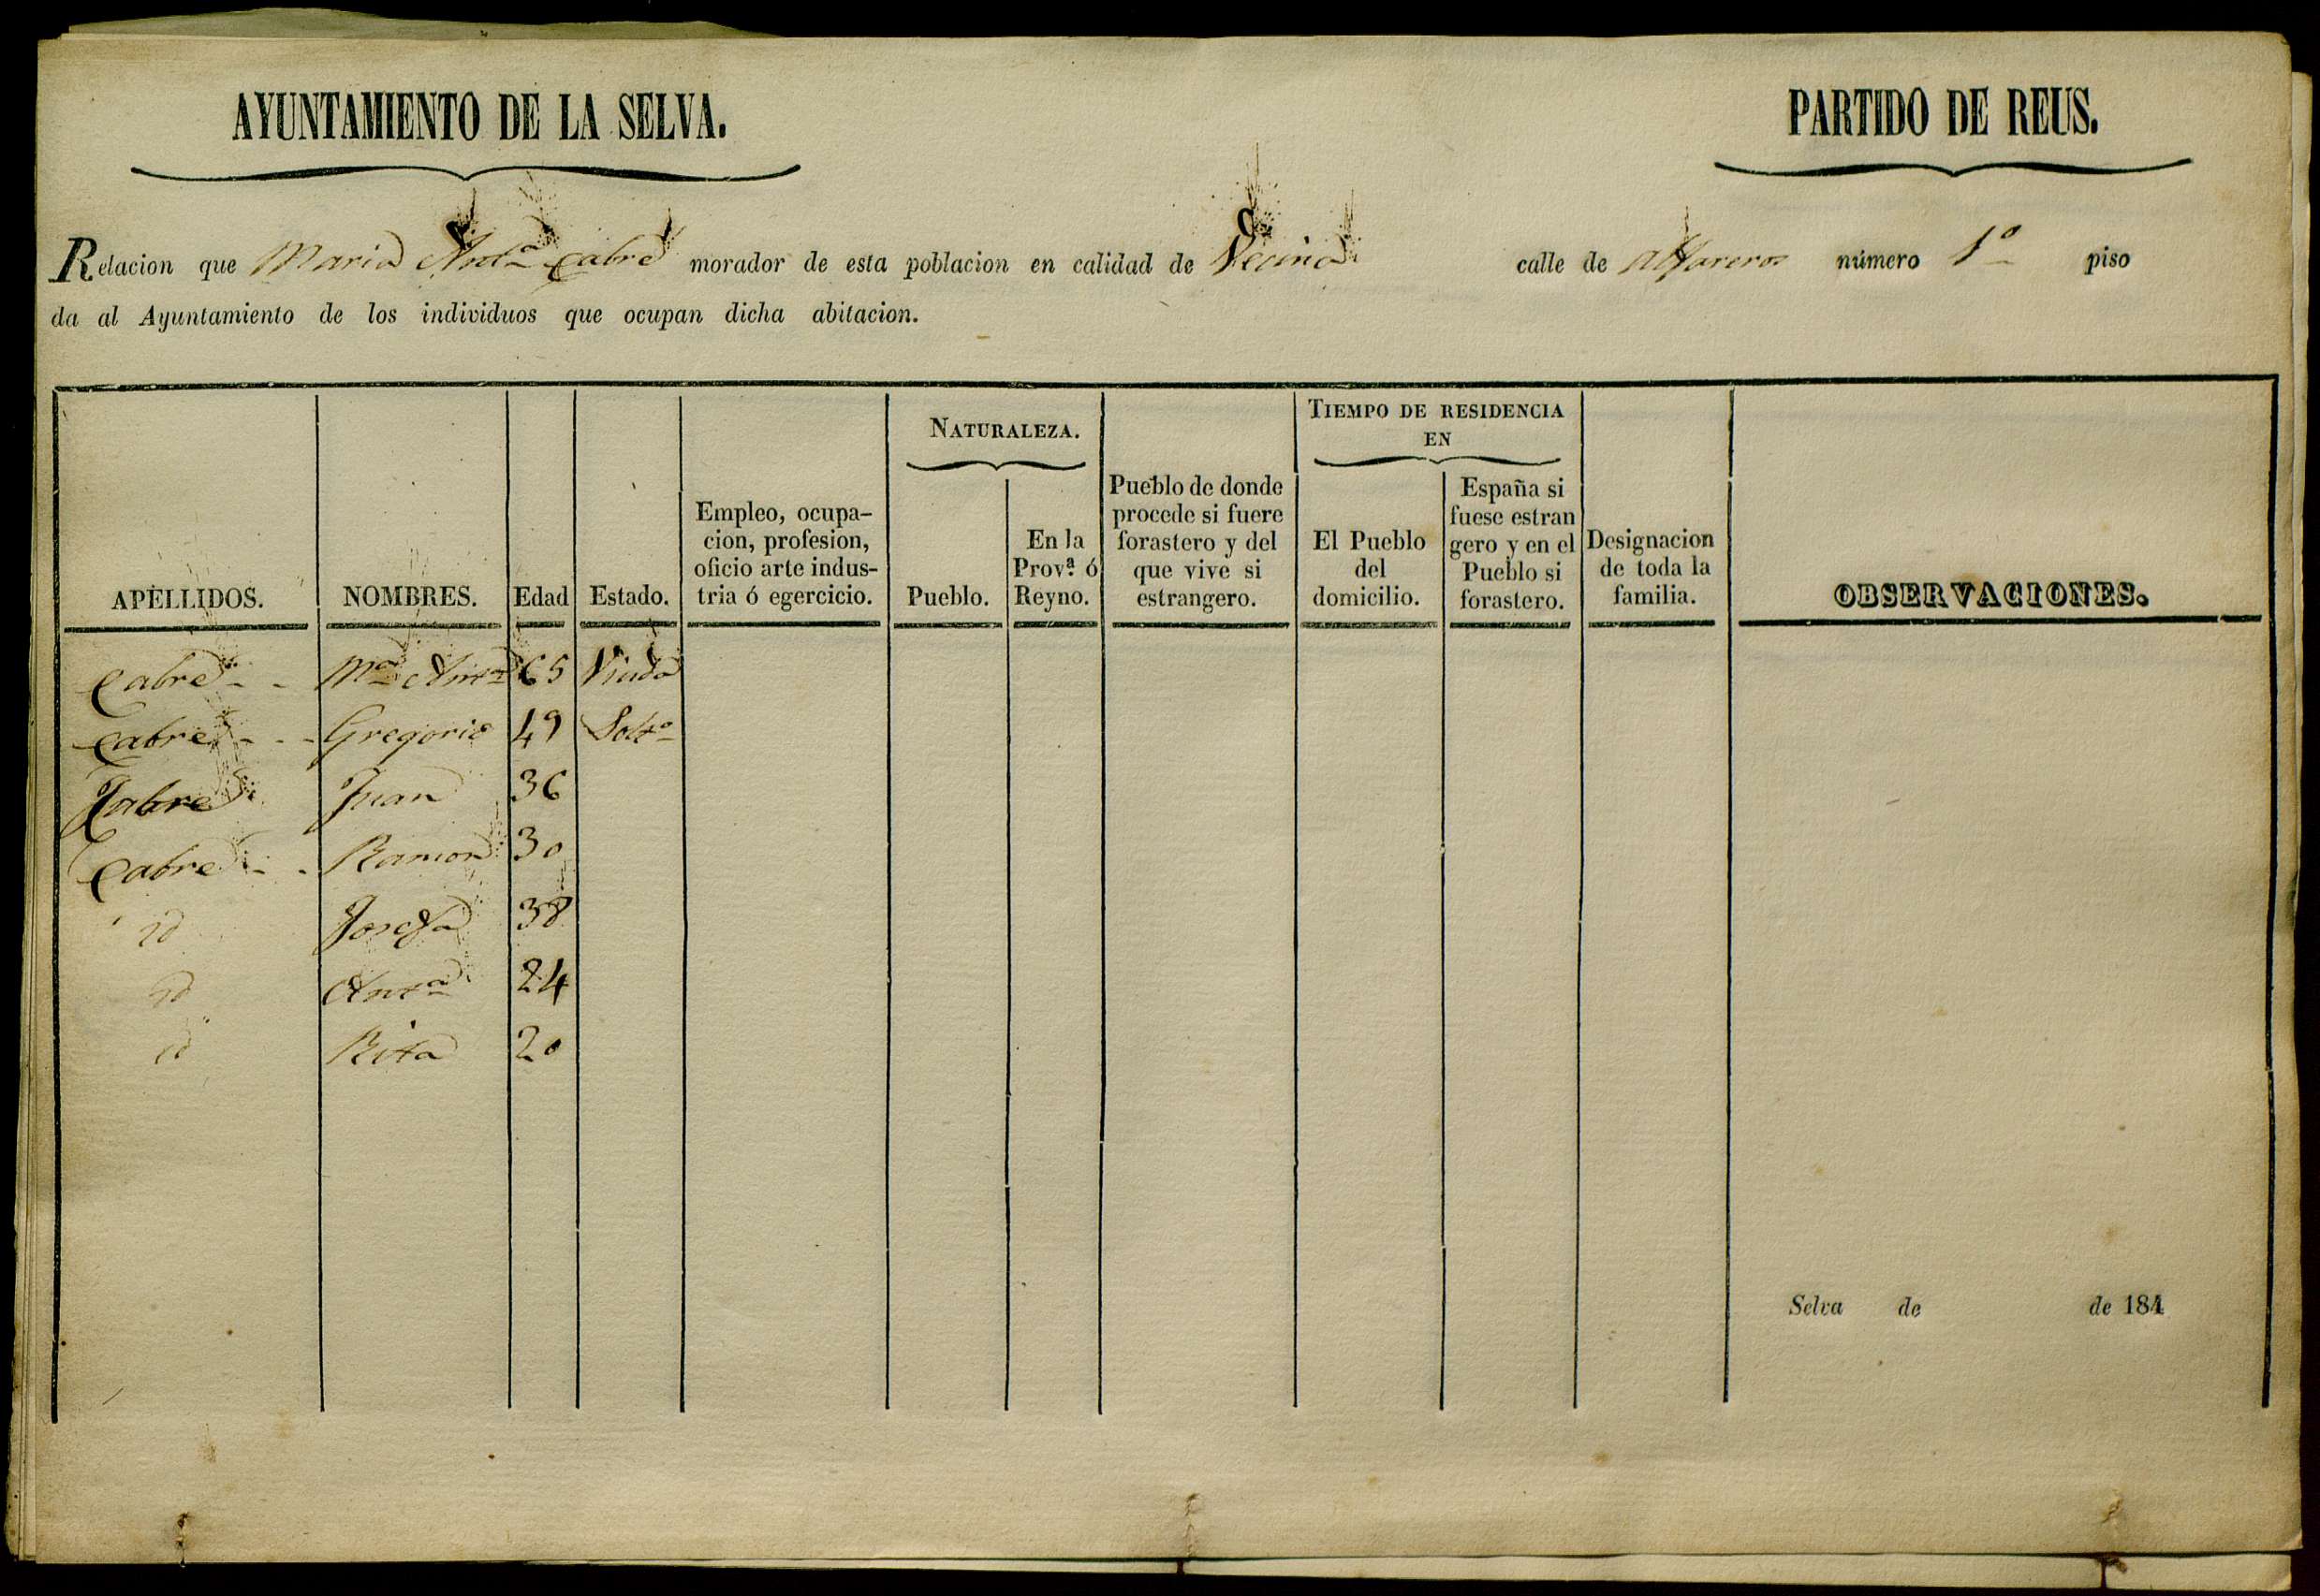 AYUNTAMIENTO DE LA SELVA.
PARTIDO DE REUS.
Relacion que Maria Antª Cabre morador de esta poblacion en calidad de Vecina calle de Alfareros número 1º piso
da al Ayuntamiento de los individuos que ocupan dicha abitacion.
APELLIDOS.
NOMBRES.
Edad
Estado.
Empleo, ocupa-
cion, profesion,
oficio arte indus-
tria ó egercicio.
NATURALEZA.
Pueblo.
En la
Provª. ó
Reyno.
Pueblo de donde
procede si fuere
forastero y del
que vive si
estrangero.
TIEMPO DE RESIDENCIA
EN
El Pueblo
del
domicilio.
España si
fuese estran
gero y en el
Pueblo si
forastero.
Designacion
de toda la
familia.
OBSERVACIONES.
Cabre - - Mª Antª 65 Viuda
Cabre - - - Gregorio 49 Soltº
Cabre Juan 36
Cabre - - Ramon 30
id Josefa 38
id Antª 24
id Rita 20
Selva de de 184